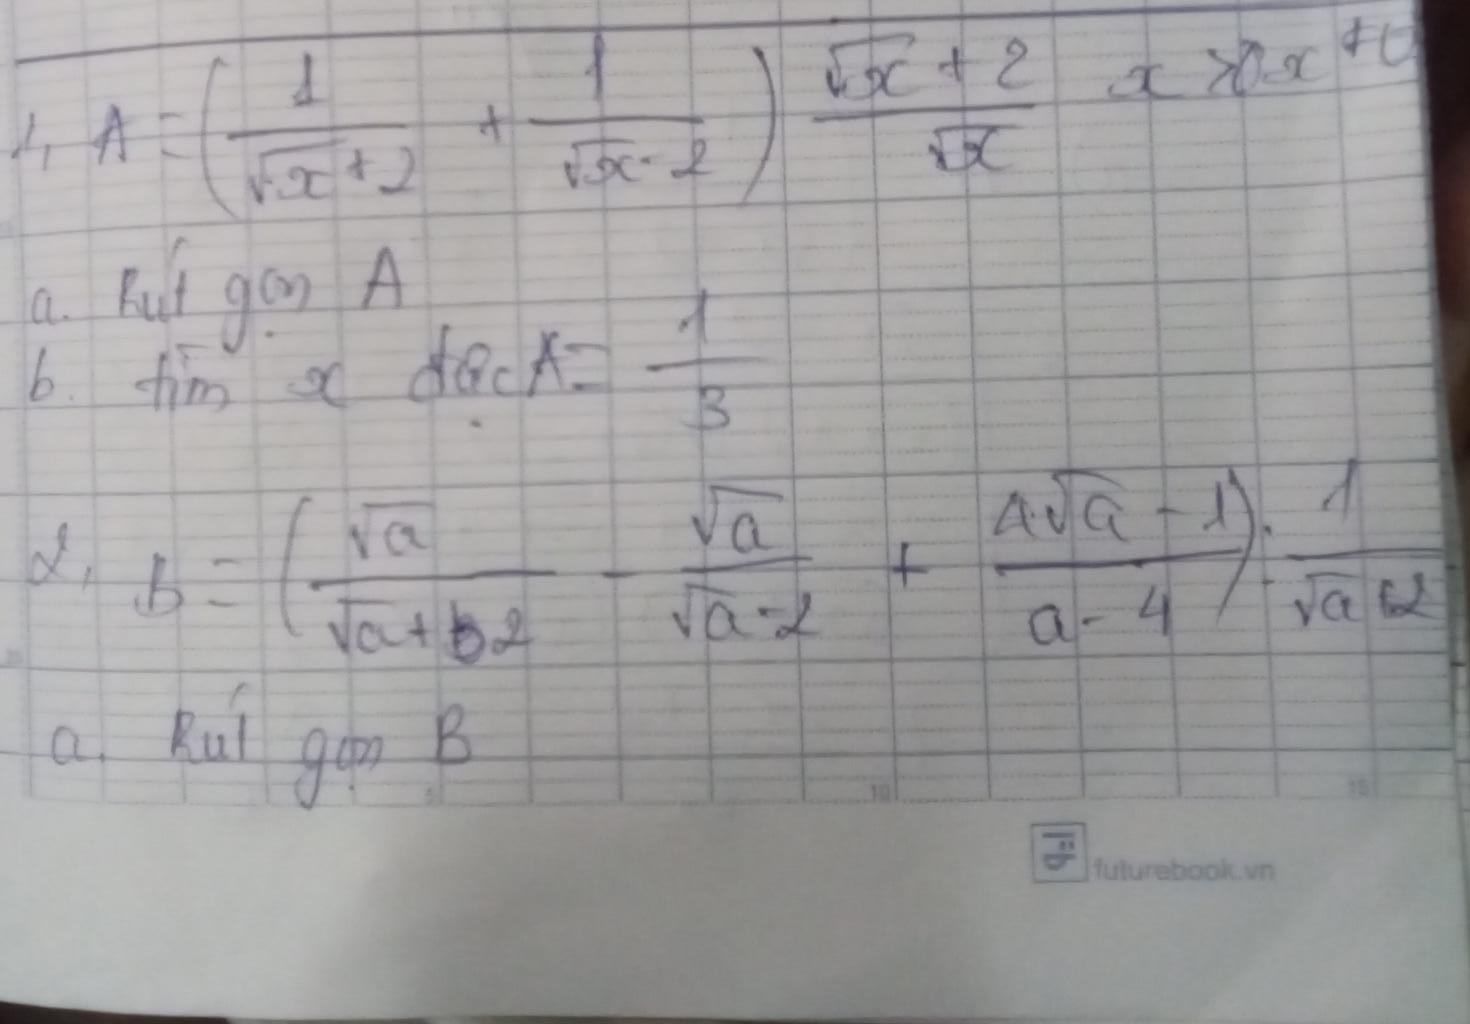 1, A = ( 1/(√x + 2) + 1/(√x - 2) ) (√x + 2)/√x x > 0 x ≠
a. Rút gọn A
b. tìm x A = 1/3
2, B = ( √a/(√a + 2) - √a/(√a - 2) + (4√a - 1)/(a - 4) ) : 1/(√a + 2)
a. Rút gọn B
5 10 15
futurebook.vn